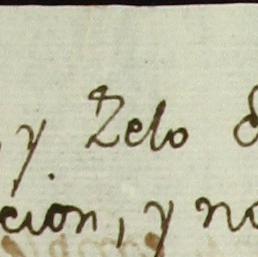 , y Zelo
cion, y no